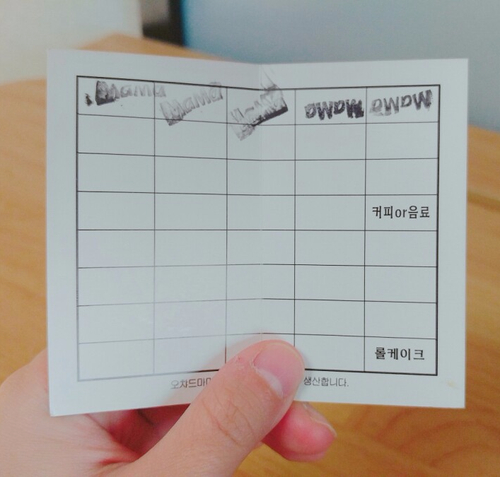 MaMa MaMa MaMa MaMa MaMa
커피or음료
롤케이크
생산합니다.